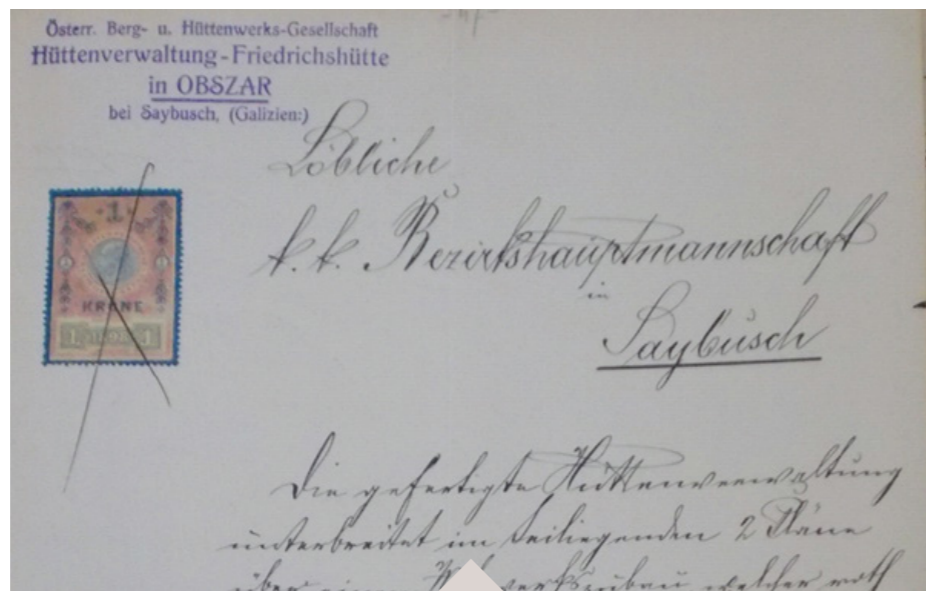 Österr. Berg- u. Hüttenwerks-Gesellschaft
Hüttenverwaltung-Friedrichshütte
in OBSZAR
bei Saybusch, (Galizien:)
Löbliche
k. k. Bezirkshauptmannschaft
in
Saybusch
1
KRONE
1 1
Die gefertigte Hüttenverwaltung
unterbreitet im beiliegenden 2 Pläne
über welcher